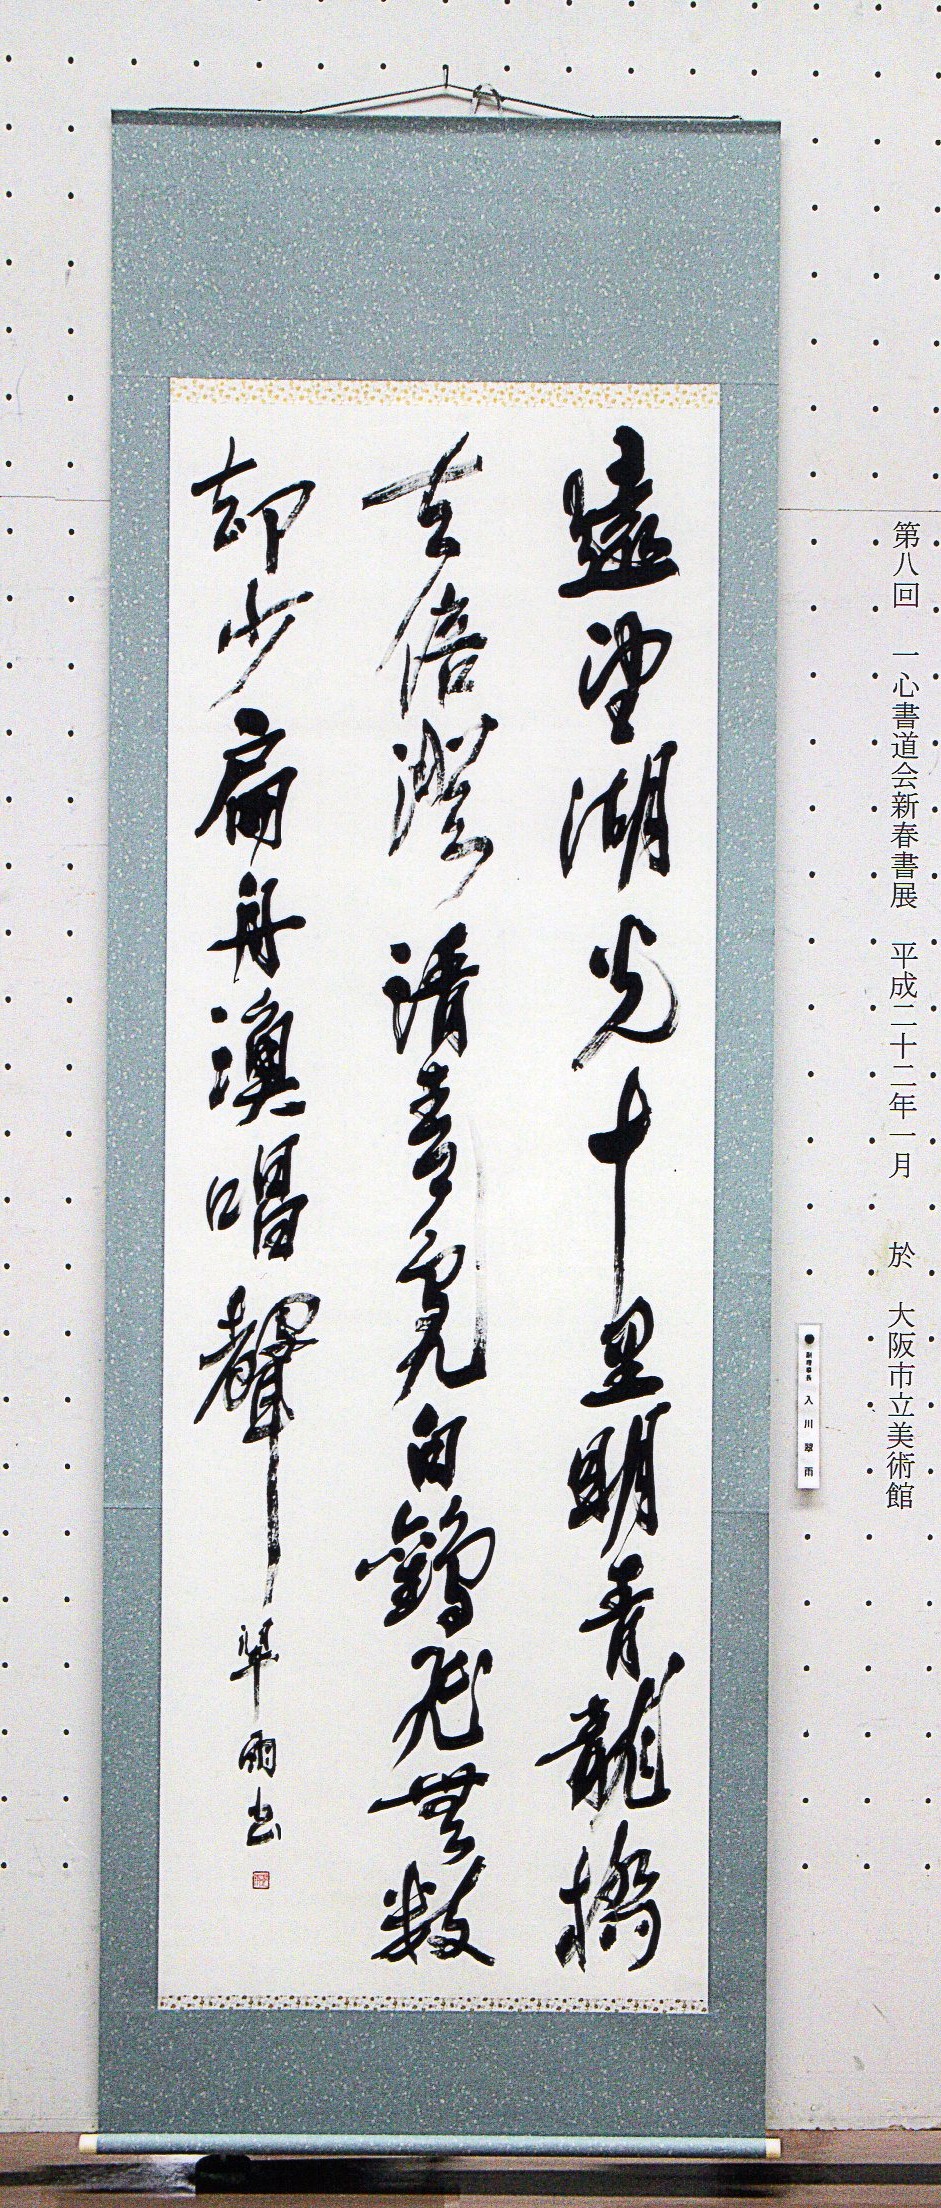 第八回 一心書道会新春書展 平成二十二年一月 於 大阪市立美術館
副理事長 入川翠雨
遠望湖光十里明青龍橋
去倍澄清青鳧白鶴飛無数
却少扁舟漁唱聲 翠雨書